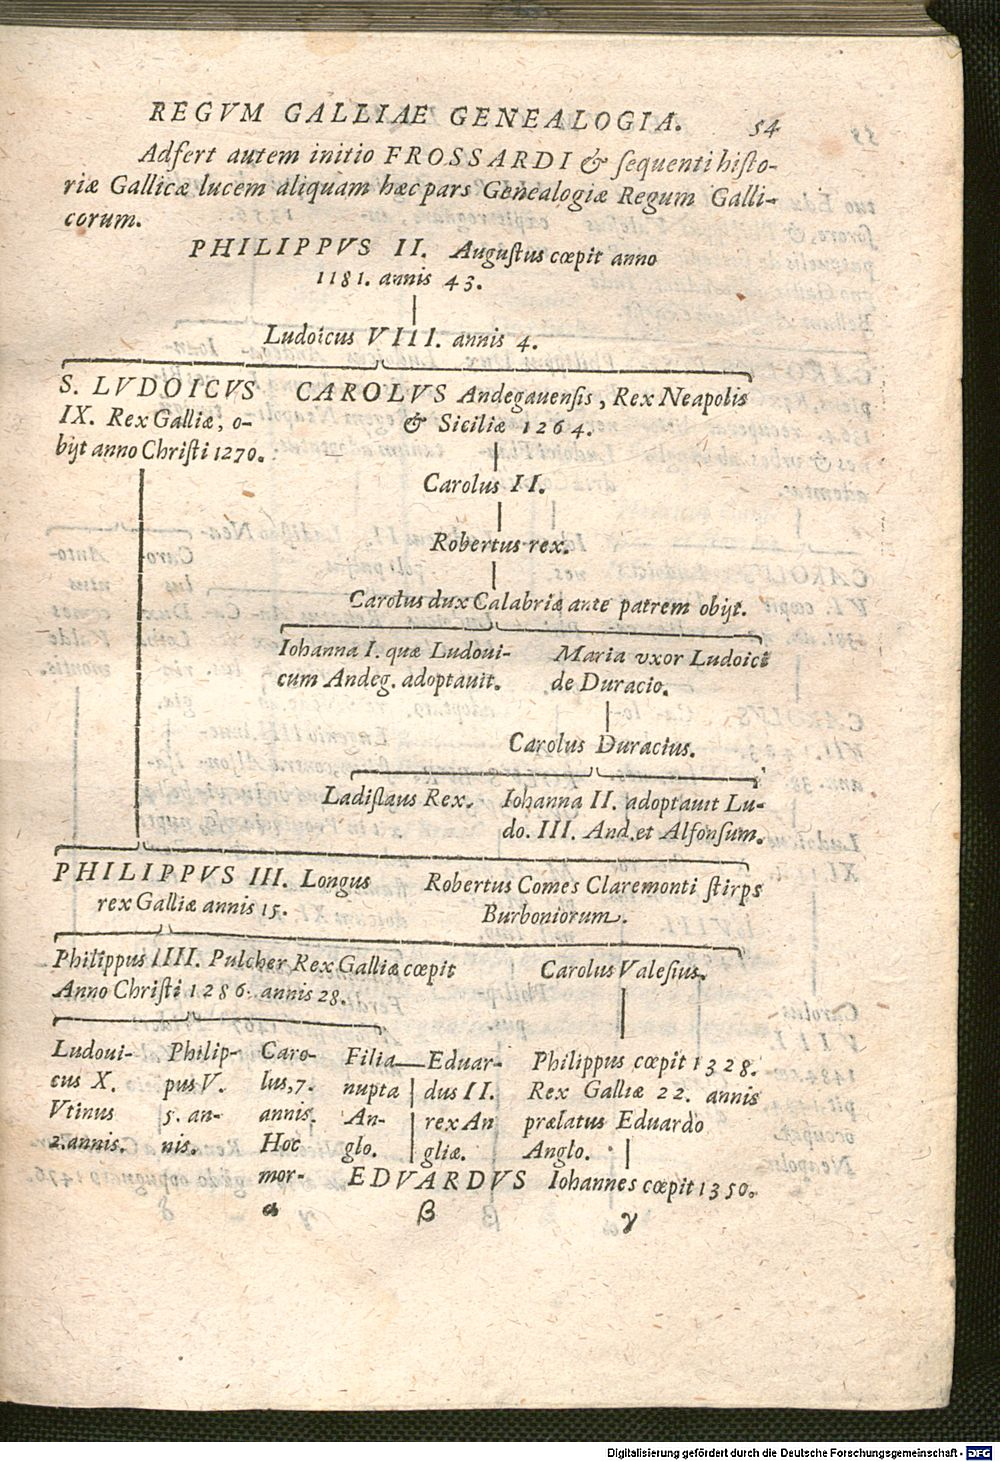 REGVM GALLIAE GENEALOGIA. 54
Adfert autem initio FROSSARDI & ſequenti hiſto-
riæ Gallicæ lucem aliquam hæc pars Genealogiæ Regum Galli-
corum.
PHILIPPVS II. Auguſtus cœpit anno
1181. annis 43.
Ludoicus VIII. annis 4.
S. LVDOICVS
IX. Rex Galliæ, o-
bijt anno Chriſti 1270.
CAROLVS Andegauenſis, Rex Neapolis
& Siciliæ 1264.
Carolus II.
Robertus rex.
Carolus dux Calabriæ ante patrem obijt.
Iohanna I. quæ Ludoui-
cum Andeg. adoptauit.
Maria vxor Ludoici
de Duracio.
Carolus Duracius.
Ladiſlaus Rex.
Iohanna II. adoptauit Lu-
do. III. And. et Alfonſum.
PHILIPPVS III. Longus
rex Galliæ annis 15.
Robertus Comes Claremonti ſtirps
Burboniorum.
Philippus IIII. Pulcher Rex Galliæ cœpit
Anno Chriſti 1286. annis 28.
Carolus Valeſius.
Ludoui-
cus X.
Vtinus
2. annis.
Philip-
pus V.
5. an-
nis.
Caro-
lus, 7.
annis.
Hoc
mor-
α
Filia
nupta
An-
glo.
Eduar-
dus II.
rex An
gliæ.
EDVARDVS
β
Philippus cœpit 1328.
Rex Galliæ 22. annis
prælatus Eduardo
Anglo.
Iohannes cœpit 1350.
γ
Digitalisierung gefördert durch die Deutsche Forschungsgemeinschaft - DFG